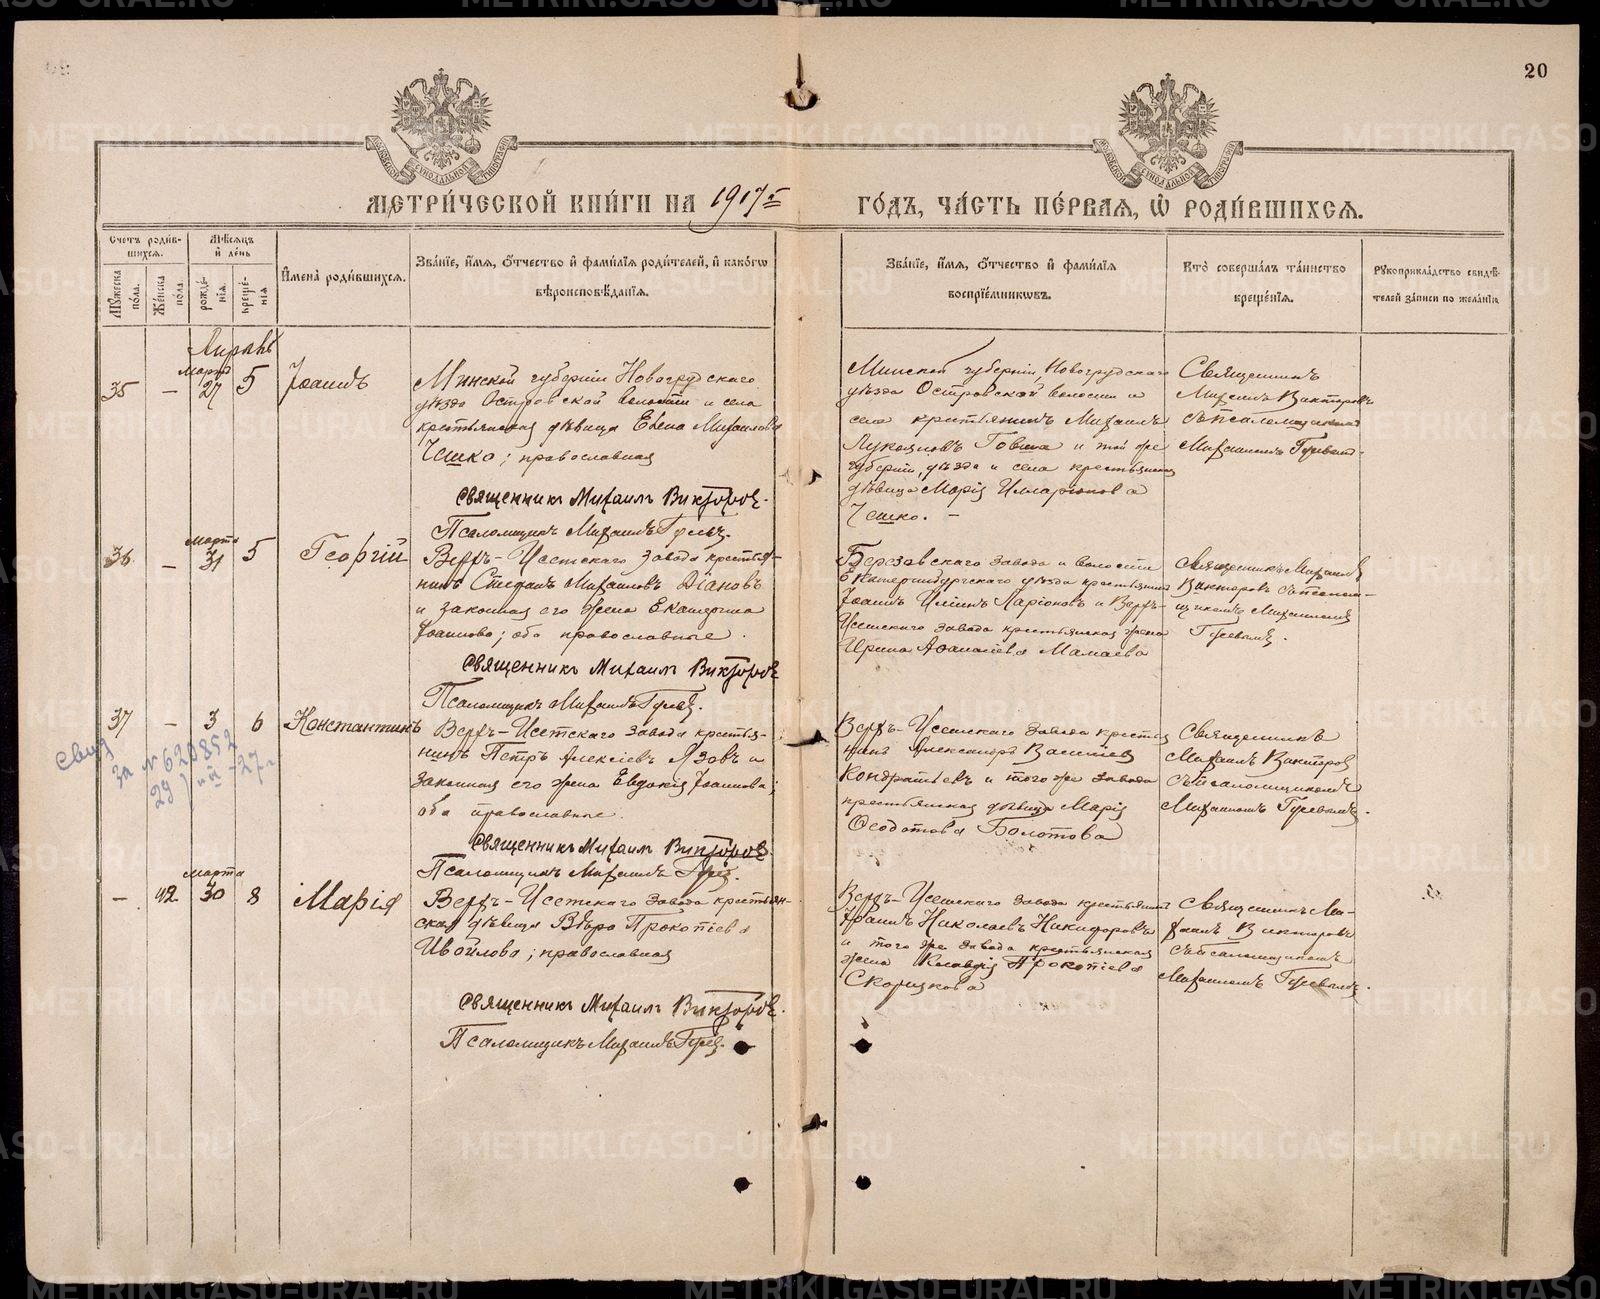 20
МЕТРИ́ЧЕСКОЙ КНИ́ГИ НА 1917 г.
ГО́ДЪ, ЧА́СТЬ ПЕ́РВАѦ, Ѡ҆ РОДИ́ВШИХСѦ.
Счетъ роди́в-
шихсѧ.
Мꙋ́жеска по́ла.
Же́нска по́ла.
Мѣ́сѧцъ и҆ де́нь
рожде́-нїѧ.
креще́-нїѧ
И҆мена̀ роди́вшихсѧ.
Зва́нїе, и҆́мѧ, ѻ҆́тчество и҆ фами́лїѧ роди́телей, и҆ како́гѡ
вѣроисповѣ́данїѧ.
Зва́нїе, и҆́мѧ, ѻ҆́тчество и҆ фами́лїѧ
воспрїе́мниковъ.
Кто̀ соверша́лъ та́инство
креще́нїѧ.
Рꙋкоприкла́дство свидѣ́-
телей за́писи по жела́нїю
Апрѣль
35 — Марта 27 5 Іоаннъ
Минской губерніи Новогрудскаго
уѣзда Островской волости и села
крестьянская дѣвица Елена Михаилова
Чешко; православная
Священникъ Михаилъ Викторовъ.
Псаломщикъ Михаилъ Гуревъ.
Минской губерніи, Новогрудскаго
уѣзда Островской волости и
села крестьянинъ Михаилъ
Лукьяновъ и той же
губерніи, уѣзда и села крестьянская
дѣвица Марія Илларіонова
Чешко. —
Священникъ
Михаилъ Викторовъ
съ псаломщикомъ
Михаиломъ
36 — Марта 31 5 Георгій
Верхъ-Исетскаго завода крестья-
нинъ Стефанъ Михаиловъ Діановъ
и законная его жена Екатерина
Іоаннова; оба православные.
Священникъ Михаилъ Викторовъ
Псаломщикъ Михаилъ Гуревъ.
Березовскаго завода и волости
Екатеринбургскаго уѣзда крестьянинъ
Іоаннъ Иліинъ Ларіоновъ и Верхъ-
Исетскаго завода крестьянская жена
Ирина Аѳанасіева Мамаева
Священникъ Михаилъ
Викторовъ съ псалом-
щикомъ Михаиломъ
Гуревымъ.
37 — 3 6 Константинъ
Верхъ-Исетскаго завода крестья-
нинъ Петръ Алексіевъ Язовъ и
законная его жена Евдокія Іоаннова;
оба православные.
Священникъ Михаилъ Викторовъ
Псаломщикъ Михаилъ Гуревъ.
Верхъ-Исетскаго завода крестья
нинъ Александръ Василіевъ
Кондратьевъ и того же завода
крестьянская дѣвица Марія
Ѳеодотова Болотова
Священникъ
Михаилъ Викторовъ
съ псаломщикомъ
Михаиломъ Гуревымъ.
свид
за № 620852
29 27 г.
— 42 Марта 30 8 Марія
Верхъ-Исетскаго завода крестьян-
ская дѣвица Вѣра Прокопіева
Ивойлова; православная
Священникъ Михаилъ Викторовъ.
Псаломщикъ Михаилъ Гуревъ.
Верхъ-Исетскаго завода крестьянинъ
Іоаннъ Николаевъ Никифоровъ
и того же завода крестьянская
жена Клавдія Прокопіева
Скорнякова
Священникъ Ми-
хаилъ Викторовъ
съ псаломщикомъ
Михаиломъ Гуревымъ.
METRIKI.GASO-URAL.RU